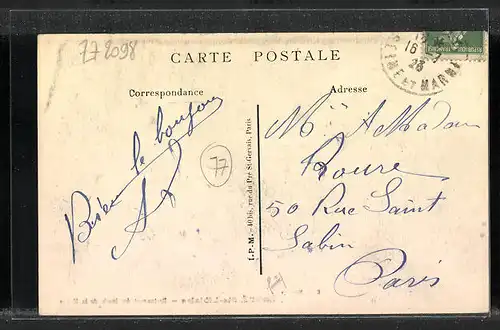 77 2098
CARTE POSTALE
Correspondance
Adresse
SEINE ET MARNE
16
23
Bien le bonjour
77
I.P.M. - 40 bis, rue du Pré St-Gervais, Paris
Mr & Madam
Roure
50 Rue Saint
Sabin
Paris